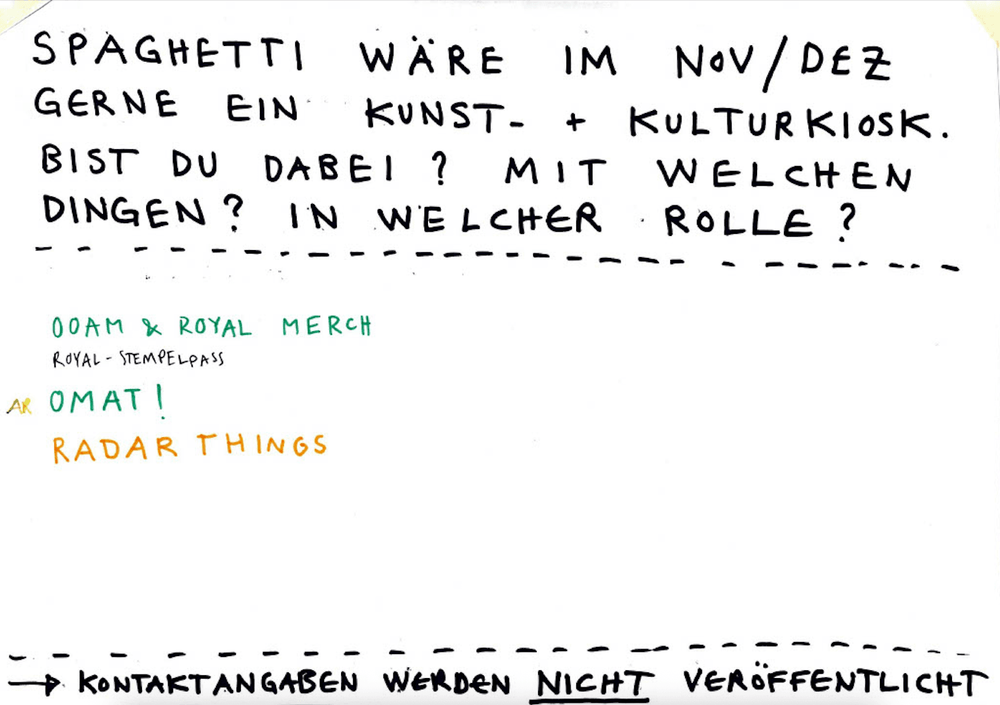 SPAGHETTI WÄRE IM NOV/DEZ
GERNE EIN KUNST- + KULTURKIOSK.
BIST DU DABEI? MIT WELCHEN
DINGEN? IN WELCHER ROLLE?
OOAM & ROYAL MERCH
ROYAL-STEMPELPASS
AR OMAT!
RADAR THINGS
→ KONTAKTANGABEN WERDEN NICHT VERÖFFENTLICHT